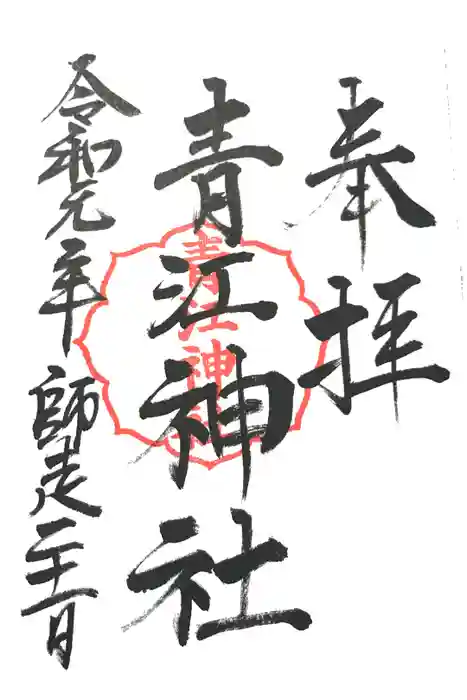 奉拝
青江神社
青江神社
令和元年師走二十一日